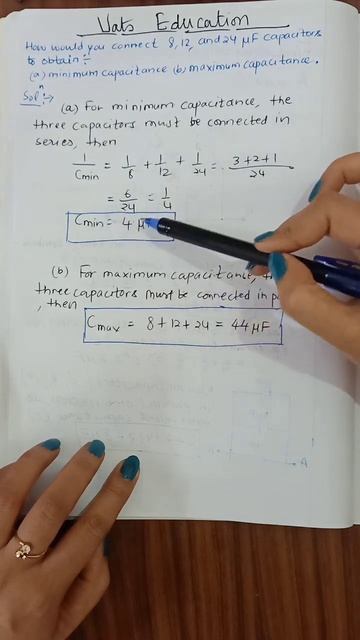 Vats Education
How would you connect 8, 12, and 24 μF capacitors
to obtain :-
(a) minimum capacitance (b) maximum capacitance.
Solⁿ :→
(a) For minimum capacitance, the
three capacitors must be connected in
series, then
1/Cmin = 1/8 + 1/12 + 1/24 = 3+2+1/24
= 6/24 = 1/4
Cmin = 4 μ
(b) For maximum capacitance,
three capacitors must be connected in
, then
Cmax = 8 + 12 + 24 = 44 μF